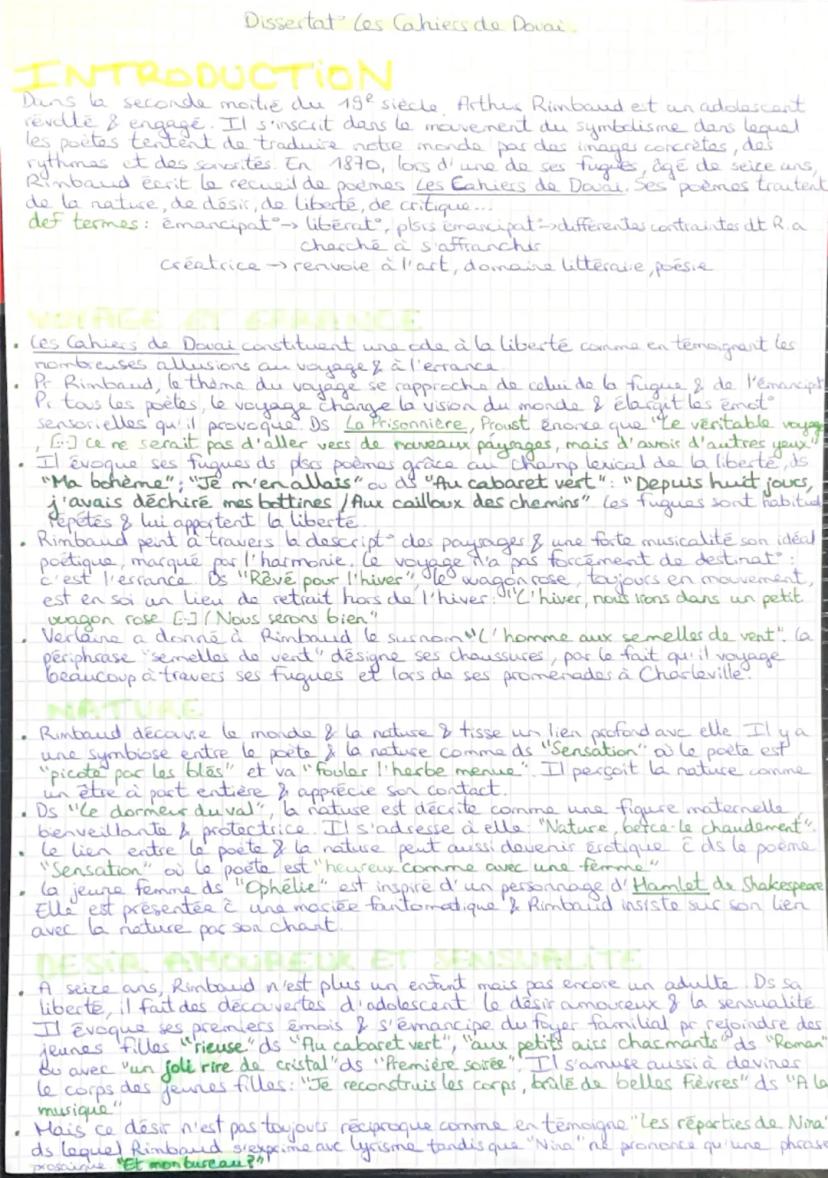 Dissertat° Les Cahiers de Douai.
INTRODUCTION
Dans la seconde moitié du 19e siècle, Arthur Rimbaud est un adolescent
révolté & engagé. Il s'inscrit dans le mouvement du symbolisme dans lequel
les poètes tentent de traduire notre monde par des images concrètes, des
rythmes et des sonorités. En 1870, lors d'une de ses fugues, âgé de seize ans,
Rimbaud écrit le recueil de poèmes Les Cahiers de Douai. Ses poèmes traitent
de la nature, de désir, de liberté, de critique...
def termes : émancipat° → libérat°, plsrs émancipat° → différentes contraintes dt R. a
cherché à s'affranchir
créatrice → renvoie à l'art, domaine littéraire, poésie
VOYAGE ET ERRANCE
• Les Cahiers de Douai constituent une ode à la liberté comme en témoignent les
nombreuses allusions au voyage & à l'errance
• Pr Rimbaud, le thème du voyage se rapproche de celui de la fugue & de l'émancipt
Pr tous les poètes, le voyage change la vision du monde & élargit les émot°
sensorielles qu'il provoque. Ds La Prisonnière, Proust énonce que "Le véritable voyag
, [...] ce ne serait pas d'aller vers de nouveaux paysages, mais d'avoir d'autres yeux"
• Il évoque ses fugues ds plsrs poèmes grâce au champ lexical de la liberté, ds
"Ma bohème" : "Je m'en allais" ou ds "Au cabaret vert" : "Depuis huit jours,
j'avais déchiré mes bottines / Aux cailloux des chemins" Les fugues sont habituel
répétés & lui apportent la liberté.
• Rimbaud peint à travers la descript° des paysages & une forte musicalité son idéal
poétique, marqué par l'harmonie. Le voyage n'a pas forcément de destinat° :
c'est l'errance. Ds "Rêvé pour l'hiver", le wagon rose, toujours en mouvement,
est en soi un lieu de retrait hors de l'hiver : "L'hiver, nous irons dans un petit
wagon rose [...] / Nous serons bien"
• Verlaine a donné à Rimbaud le surnom "L'homme aux semelles de vent". La
périphrase "semelles de vent" désigne ses chaussures, par le fait qu'il voyage
beaucoup à travers ses fugues et lors de ses promenades à Charleville.
NATURE
• Rimbaud découvre le monde & la nature & tisse un lien profond avc elle. Il y a
une symbiose entre le poète & la nature comme ds "Sensation" où le poète est
"picoté par les blés" et va "fouler l'herbe menue". Il perçoit la nature comme
un être à part entière & apprécie son contact.
• Ds "Le dormeur du val", la nature est décrite comme une figure maternelle,
bienveillante & protectrice. Il s'adresse à elle : "Nature, berce-le chaudement".
• Le lien entre le poète & la nature peut aussi devenir érotique c̄ ds le poème
"Sensation" où le poète est "heureux comme avec une femme"
• La jeune femme ds "Ophélie" est inspiré d'un personnage d'Hamlet de Shakespeare
Elle est présentée c̄ une mariée fantomatique & Rimbaud insiste sur son lien
avec la nature par son chant.
DESIR AMOUREUX ET SENSUALITE
• A seize ans, Rimbaud n'est plus un enfant mais pas encore un adulte. Ds sa
liberté, il fait des découvertes d'adolescent le désir amoureux & la sensualité
Il évoque ses premiers émois & s'émancipe du foyer familial pr rejoindre des
jeunes filles "rieuse" ds "Au cabaret vert", "aux petits airs charmants" ds "Roman"
ou avec "un joli rire de cristal" ds "Première soirée". Il s'amuse aussi à deviner
le corps des jeunes filles : "Je reconstruis les corps, brûlé de belles fièvres" ds "A la
musique"
• Mais ce désir n'est pas toujours réciproque comme en témoigne "Les réparties de Nina"
ds lequel Rimbaud s'exprime avc lyrisme tandis que "Nina" ne prononce qu'une phrase
prosaïque "Et mon bureau ?"